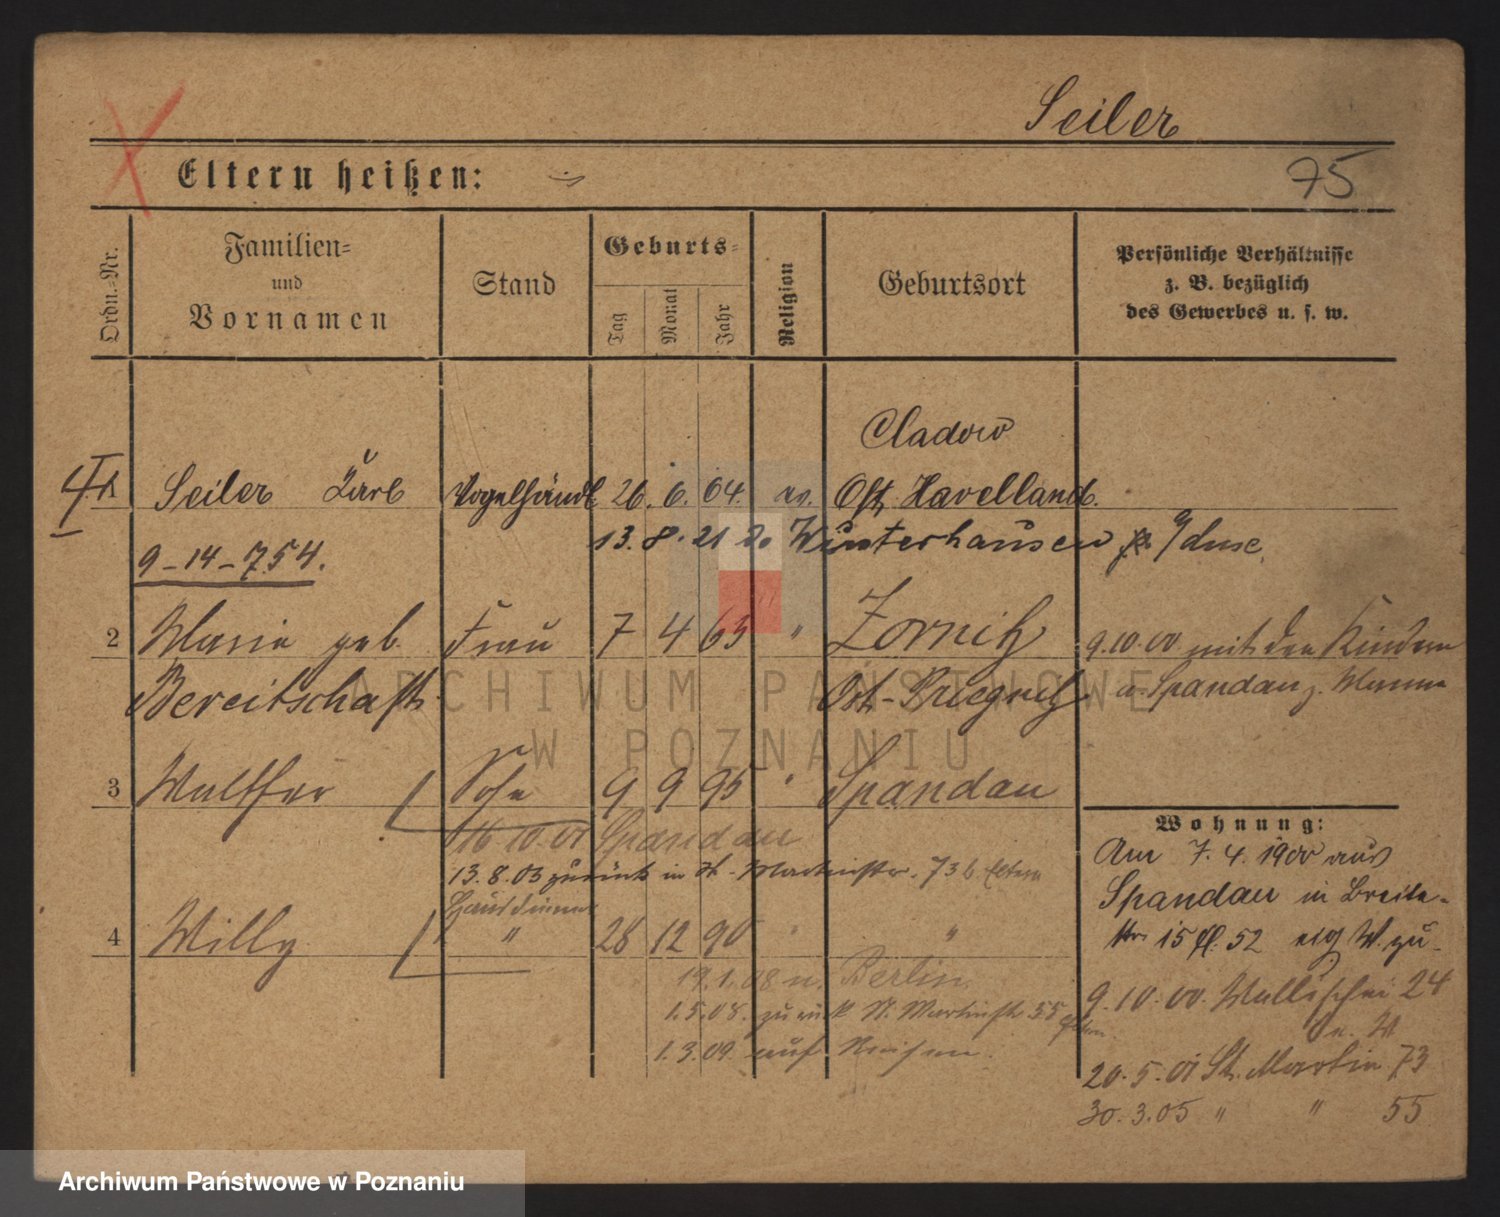 Seiler
Eltern heißen:
75
Ordn.-Nr.
Familien-
und
Vornamen
Stand
Geburts-
Tag
Monat
Jahr
Religion
Geburtsort
Persönliche Verhältnisse
z. B. bezüglich
des Gewerbes u. s. w.
Cladow
1 Seiler Karl Vogelhändl. 26. 6. 64. ev. Ost Havelland.
13. 8. 21 Winterhausen
9-14-754.
2 Marie geb. Frau 7 4 65 " Zernitz 9.10.00 mit den Kindern
Bereitschaft. Ost-Priegnitz. n. Spandau z. Manne
3 Walther Sohn 9 9 95 " Spandau
16 10.01 Spandau
13.8.03 zurück in St. Martinstr. 73 b. Eltern
Hausdiener
4 Willy " 28 12 90 " "
19.1.08 n. Berlin
1.5.08. zurück St. Martinstr. 55 Eltern
1.3.09. auf Reisen.
Wohnung:
Am 7.4.1900 aus
Spandau in Breite-
str. 15 52 eig W. zu.
9.10.00. Wallischei 24
20.5.01 St. Martin 73
30.3.05 " " 55
ARCHIWUM PAŃSTWOWE
W POZNANIU
Archiwum Państwowe w Poznaniu